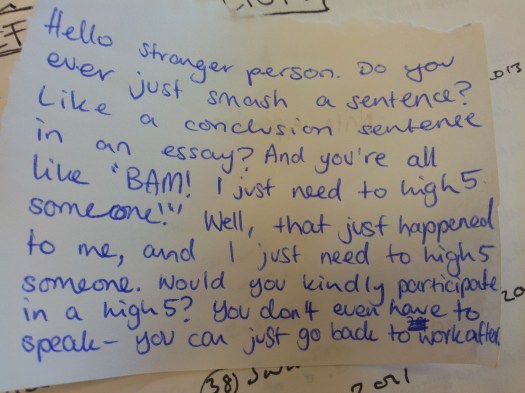 Hello stranger person. Do you
ever just smash a sentence?
Like a conclusion sentence
in an essay? And you're all
like "BAM! I just need to high 5
someone!" Well, that just happened
to me, and I just need to high 5
someone. Would you kindly participate
in a high 5? You don't even have to
speak - you can just go back to work after
013
20
(38)
2021